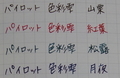 パイロット 色彩雫 山栗
パイロット 色彩雫 紅葉
パイロット 色彩雫 松露
パイロット 色彩雫 月夜